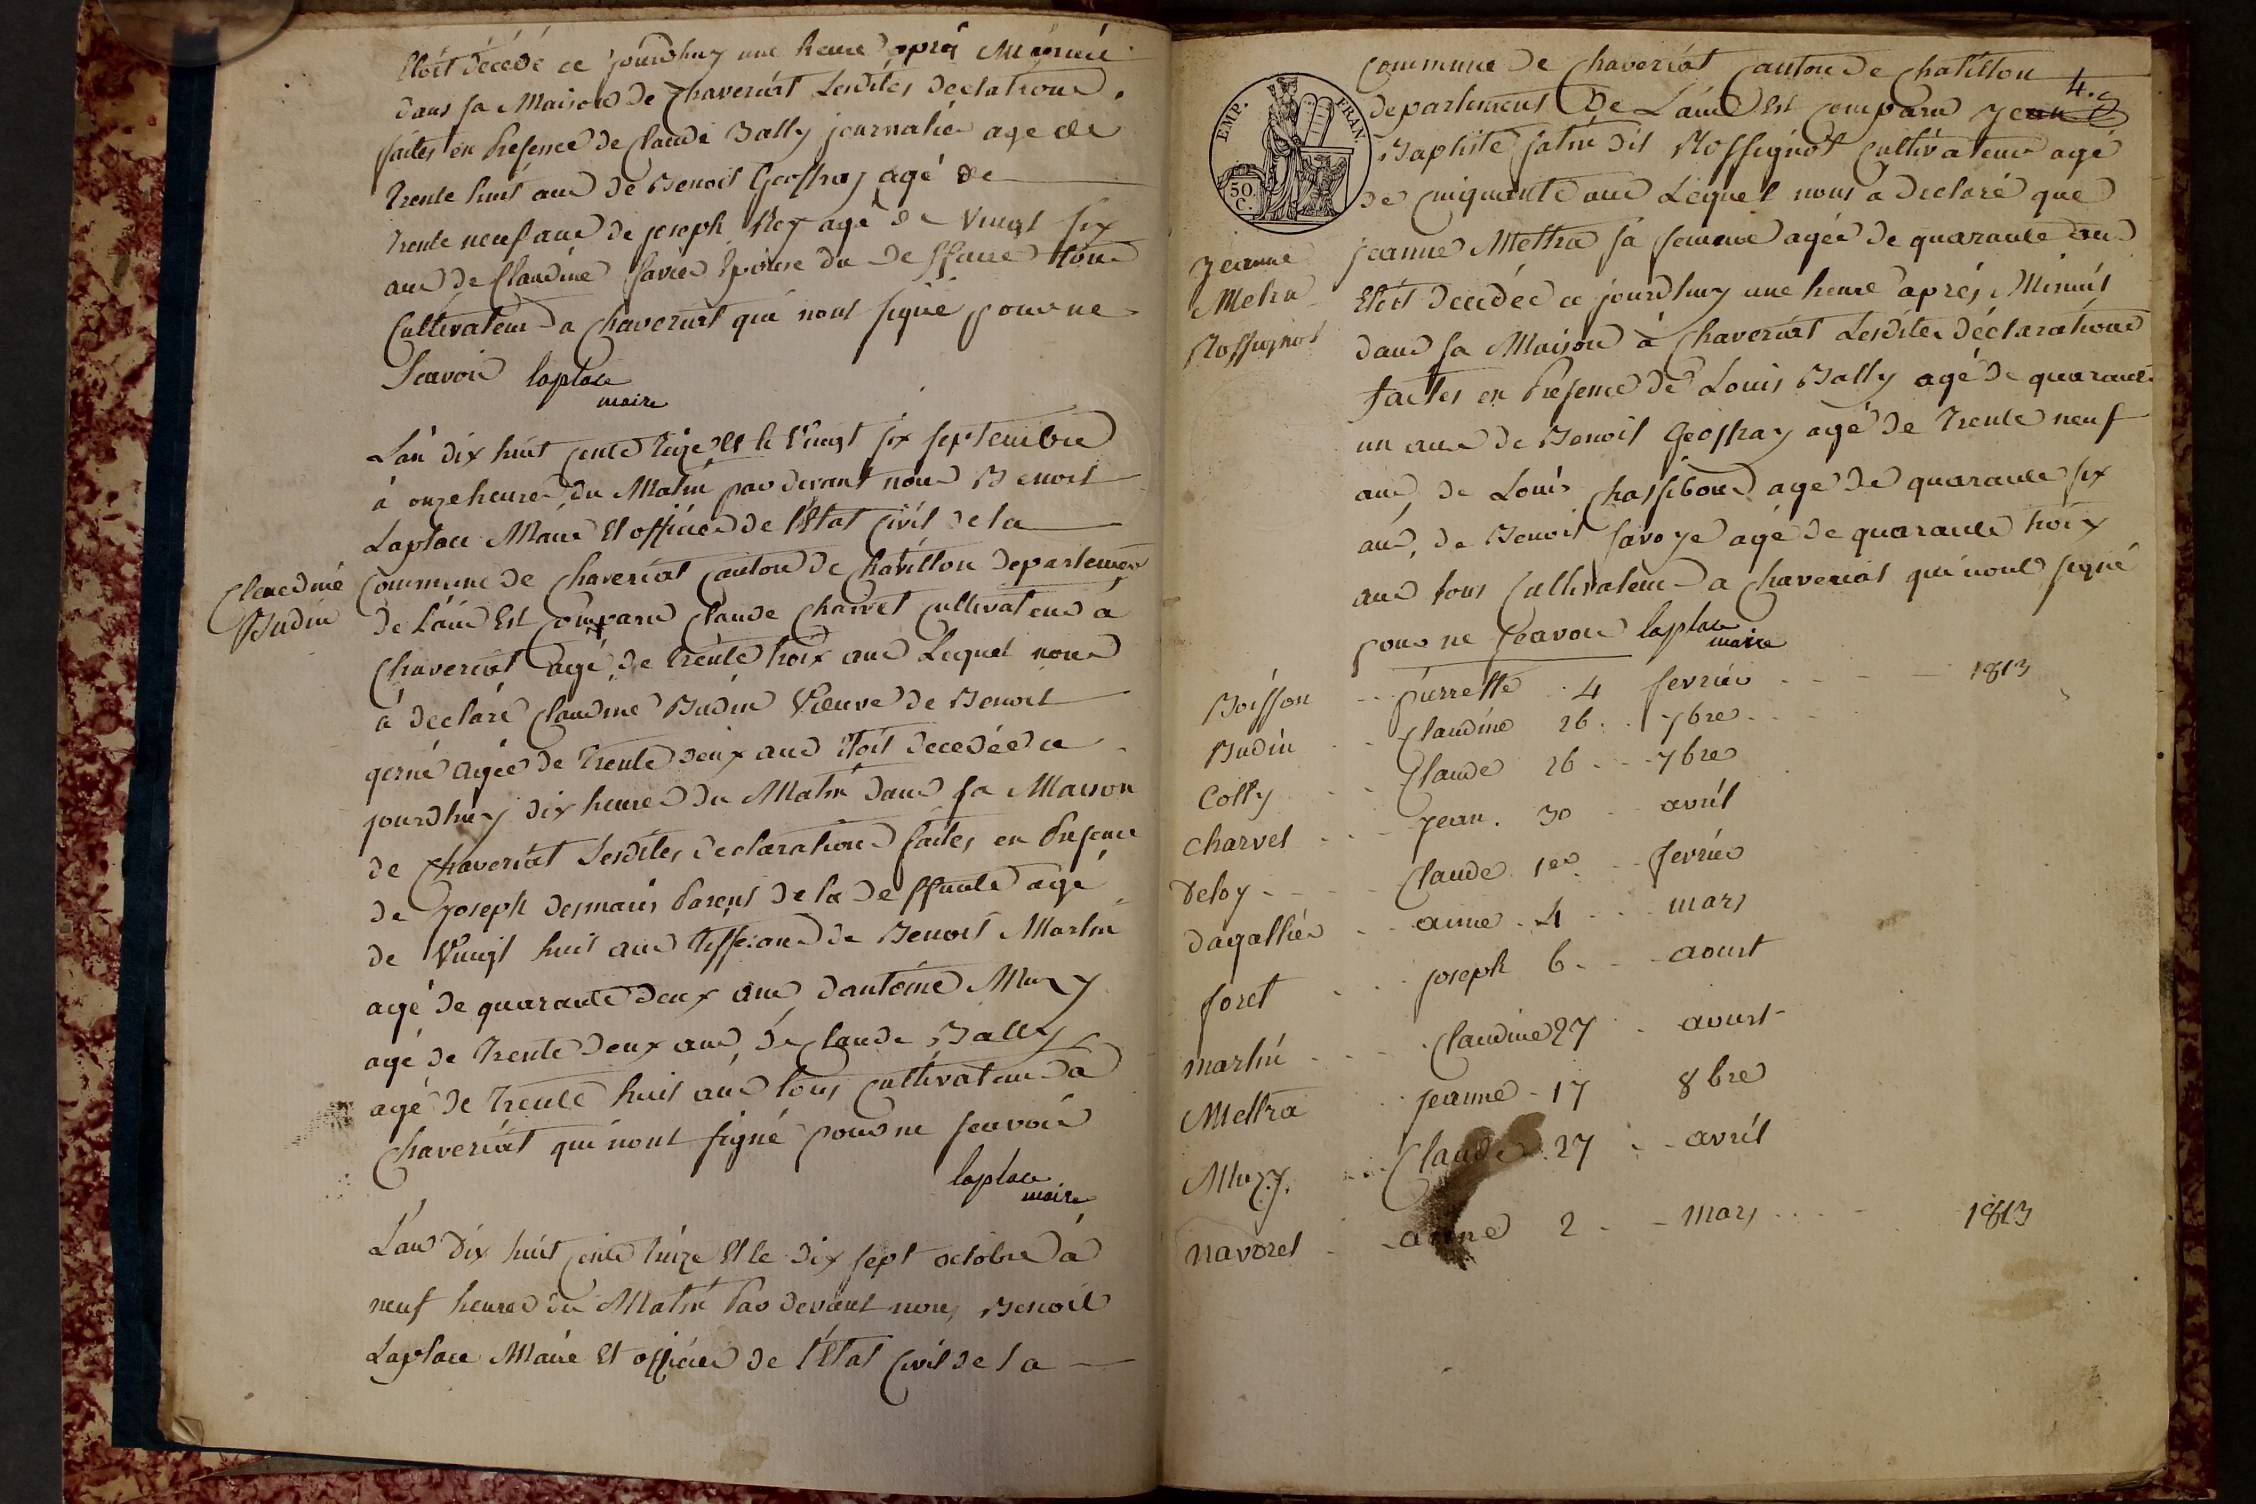 Etoit décédé ce jourdhuy une heure après Minuit
dans sa Maison de Chaveriat Lesdites declarations
faites en Presence de Claude Bally journalier age de
trente huit ans de Benoit Geoffray agé de
trente neuf ans de joseph Rey agé de vingt six
ans de Claudine favre Epouse du Deffunt tous
Cultivateurs a Chaveriat qui nont signé pour ne
Scavoir laplace
maire
Lan dix huit cents treize Et le vingt six septembre
à onze heures du Matin par devant nous Benoit
Laplace Maire Et officier de l'Etat Civil de la
Claudine
Budin
Commune de Chaveriat Canton de Chatillon departement
de L'ain Est Comparu Claude Charvet cultivateur à
Chaveriat agé de trente trois ans Lequel nous
à declaré Claudine Budin Veuve de Benoit
agée de trente deux ans Etoit decedée ce
jourdhuy dix heures du Matin dans sa Maison
de Chaveriat Lesdites declarations faites en Presence
de Joseph desmaris Parent de la deffunte agé
de Vingt huit ans tisserand de Benoit Martin
agé de quarante deux ans dantoine Muzy
agé de trente deux ans, de Claude Bally
agé de trente huit ans tous cultivateurs à
Chaveriat qui nont signé pour ne scavoir
laplace
maire
L'an dix huit cents treize Et le dix sept octobre à
neuf heures du Matin Par devant nous Benoit
Laplace Maire Et officier de l'Etat Civil de la
4.
EMP. FRAN.
50 C.
Commune de Chaveriat Canton de Chatillon
departement De L'ain Est comparu jean
Baptiste fatin dit Rossignol Cultivateur agé
de Cinquante ans Lequel nous a declaré que
Jeanne
Metra
Rossignol
jeanne Mettra sa femme agée de quarante ans
Etoit decedée ce jourdhuy une heure après Minuit
dans sa Maison à Chaveriat Lesdites déclarations
faites en Presence de Louis Bally agé de quarante
un ans de Benoit Geoffray agé de trente neuf
ans, de Louis Chassibout agé de quarante six
ans, de Benoit Savoye agé de quarante trois
ans tous Cultivateurs a Chaveriat qui nont signé
pour ne Scavoir laplace
maire
Boisson pierrette 4 fevrier 1813
Budin Claudine 26 7bre
Colly Claude 26 7bre
Charvet jean 30 avril
Deloy Claude 1er fevrier
Dagallier anne 4 mars
foret joseph 6 aoust
martin Claudine 27 aoust
Mettra jeanne 17 8bre
Muzy Claude 27 avril
navoret anne 2 mars 1813